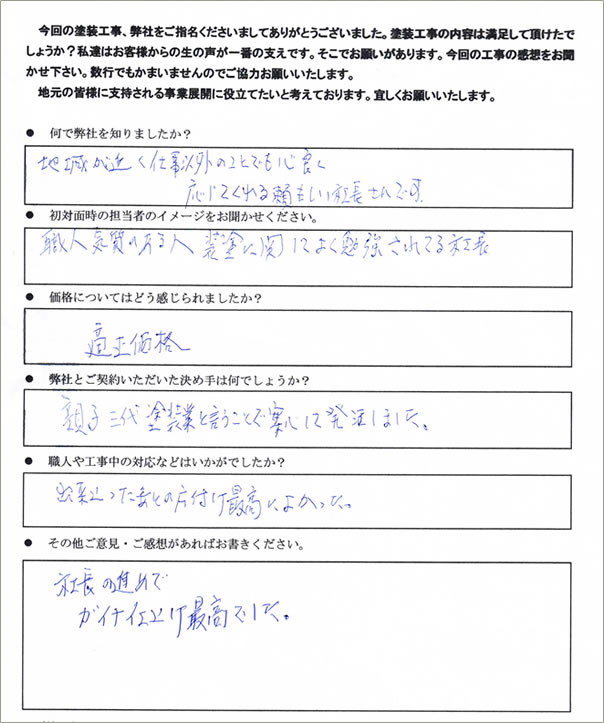 今回の塗装工事、弊社をご指名くださいましてありがとうございました。塗装工事の内容は満足して頂けたで
しょうか？私達はお客様からの生の声が一番の支えです。そこでお願いがあります。今回の工事の感想をお聞
かせ下さい。数行でもかまいませんのでご協力お願いいたします。
地元の皆様に支持される事業展開に役立てたいと考えております。宜しくお願いいたします。
● 何で弊社を知りましたか？
地域が近く仕事以外のことでも心良く
応じてくれる頼もしい社長さんです。
● 初対面時の担当者のイメージをお聞かせください。
職人気質のある人 装塗に関してよく勉強されてる社長
● 価格についてはどう感じられましたか？
適正価格
● 弊社とご契約いただいた決め手は何でしょうか？
親子三代塗装業と言うことで安心して発注しました。
● 職人や工事中の対応などはいかがでしたか？
片付け最高によかった。
● その他ご意見・ご感想があればお書きください。
社長の進めで
ガイナ仕上げ最高でした。